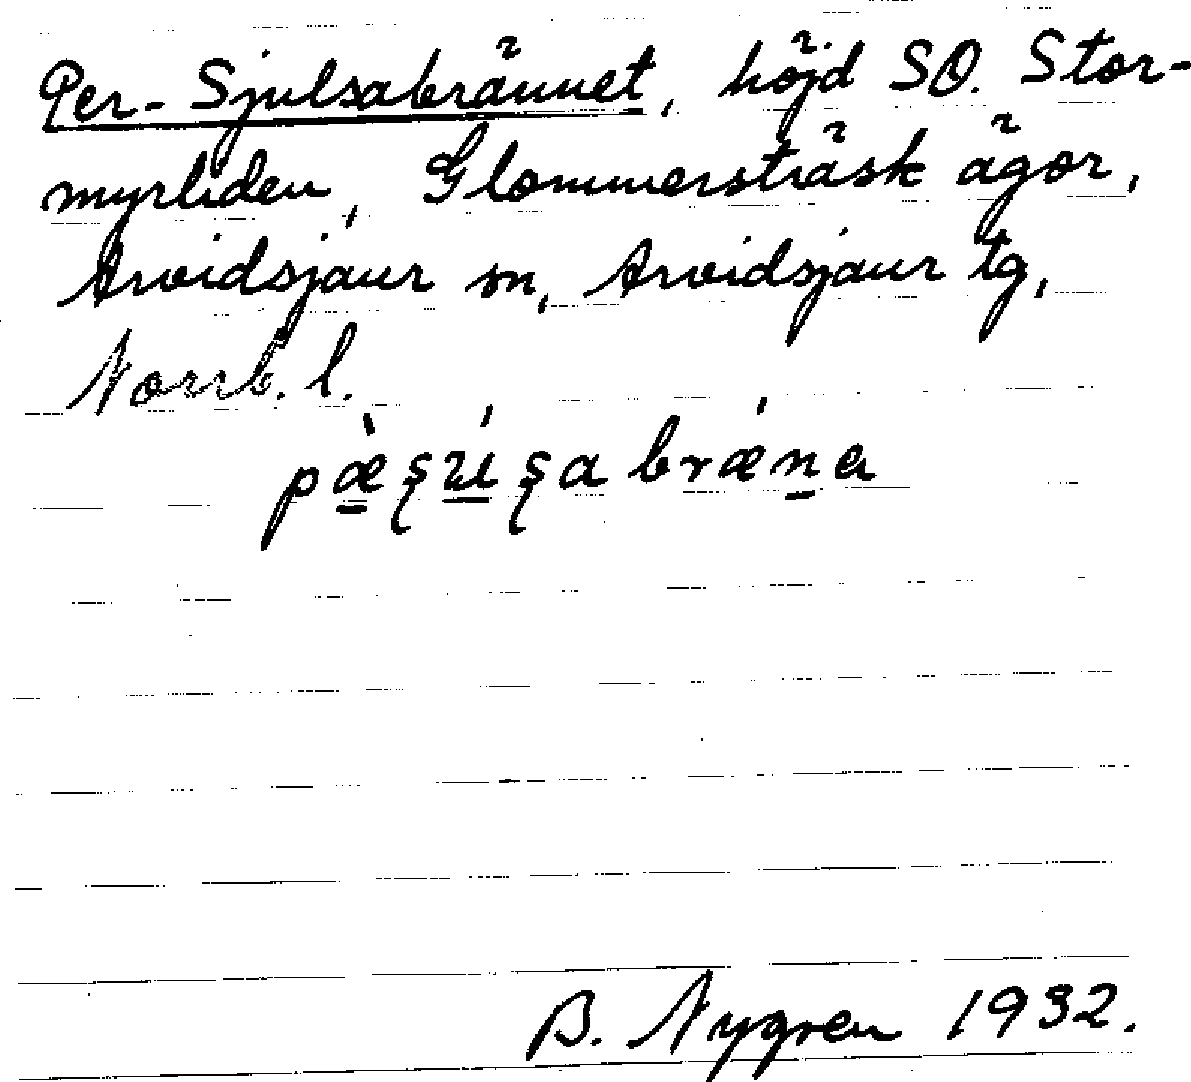 Per-Sjulsabrännet, höjd SO. Stor-
myrliden, Glommersträsk ägor,
Arvidsjaur sn, Arvidsjaur tg,
Norrb. l.
B. Nygren 1932.